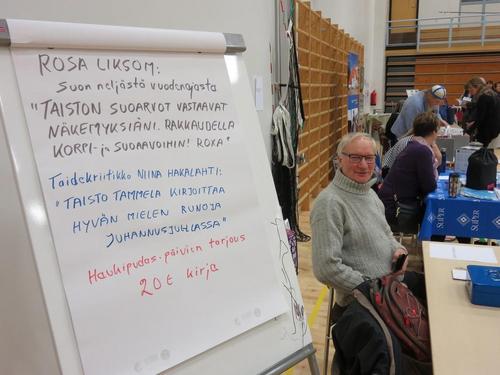 ROSA LIKSOM:
Suon neljästä vuodenajasta
"TAISTON SUOARVOT VASTAAVAT
NÄKEMYKSIÄNI. RAKKAUDELLA
KORPI- ja SUOARVOIHIN! ROXA"
Taidekriitikko NIINA HAKALAHTI:
"TAISTO TAMMELA KIRJOITTAA
HYVÄN MIELEN RUNOJA
JUHANNUSJUHLASSA"
Haukipudas-päivien tarjous
20€ kirja
SUPER
SUPER